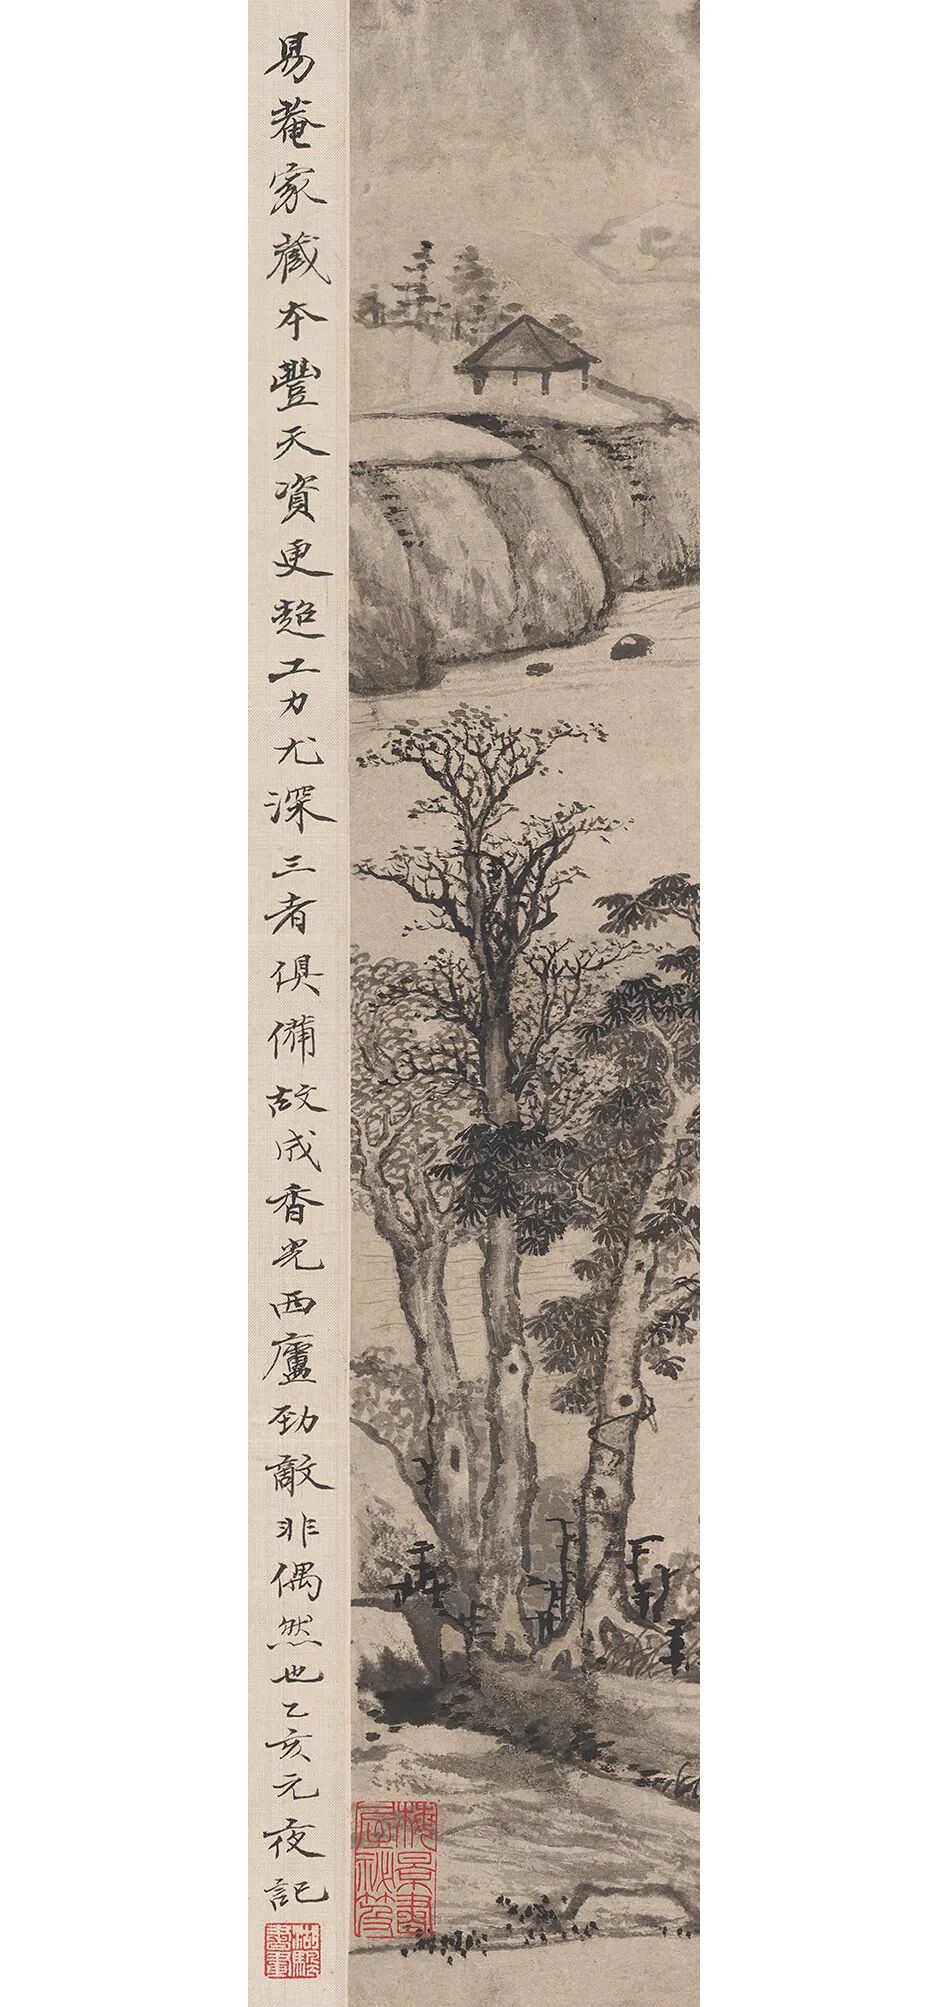 易菴家藏本豐天資更超工力尤深三者俱備故成香光西廬勁敵非偶然也乙亥元夜記
梅景書屋祕笈